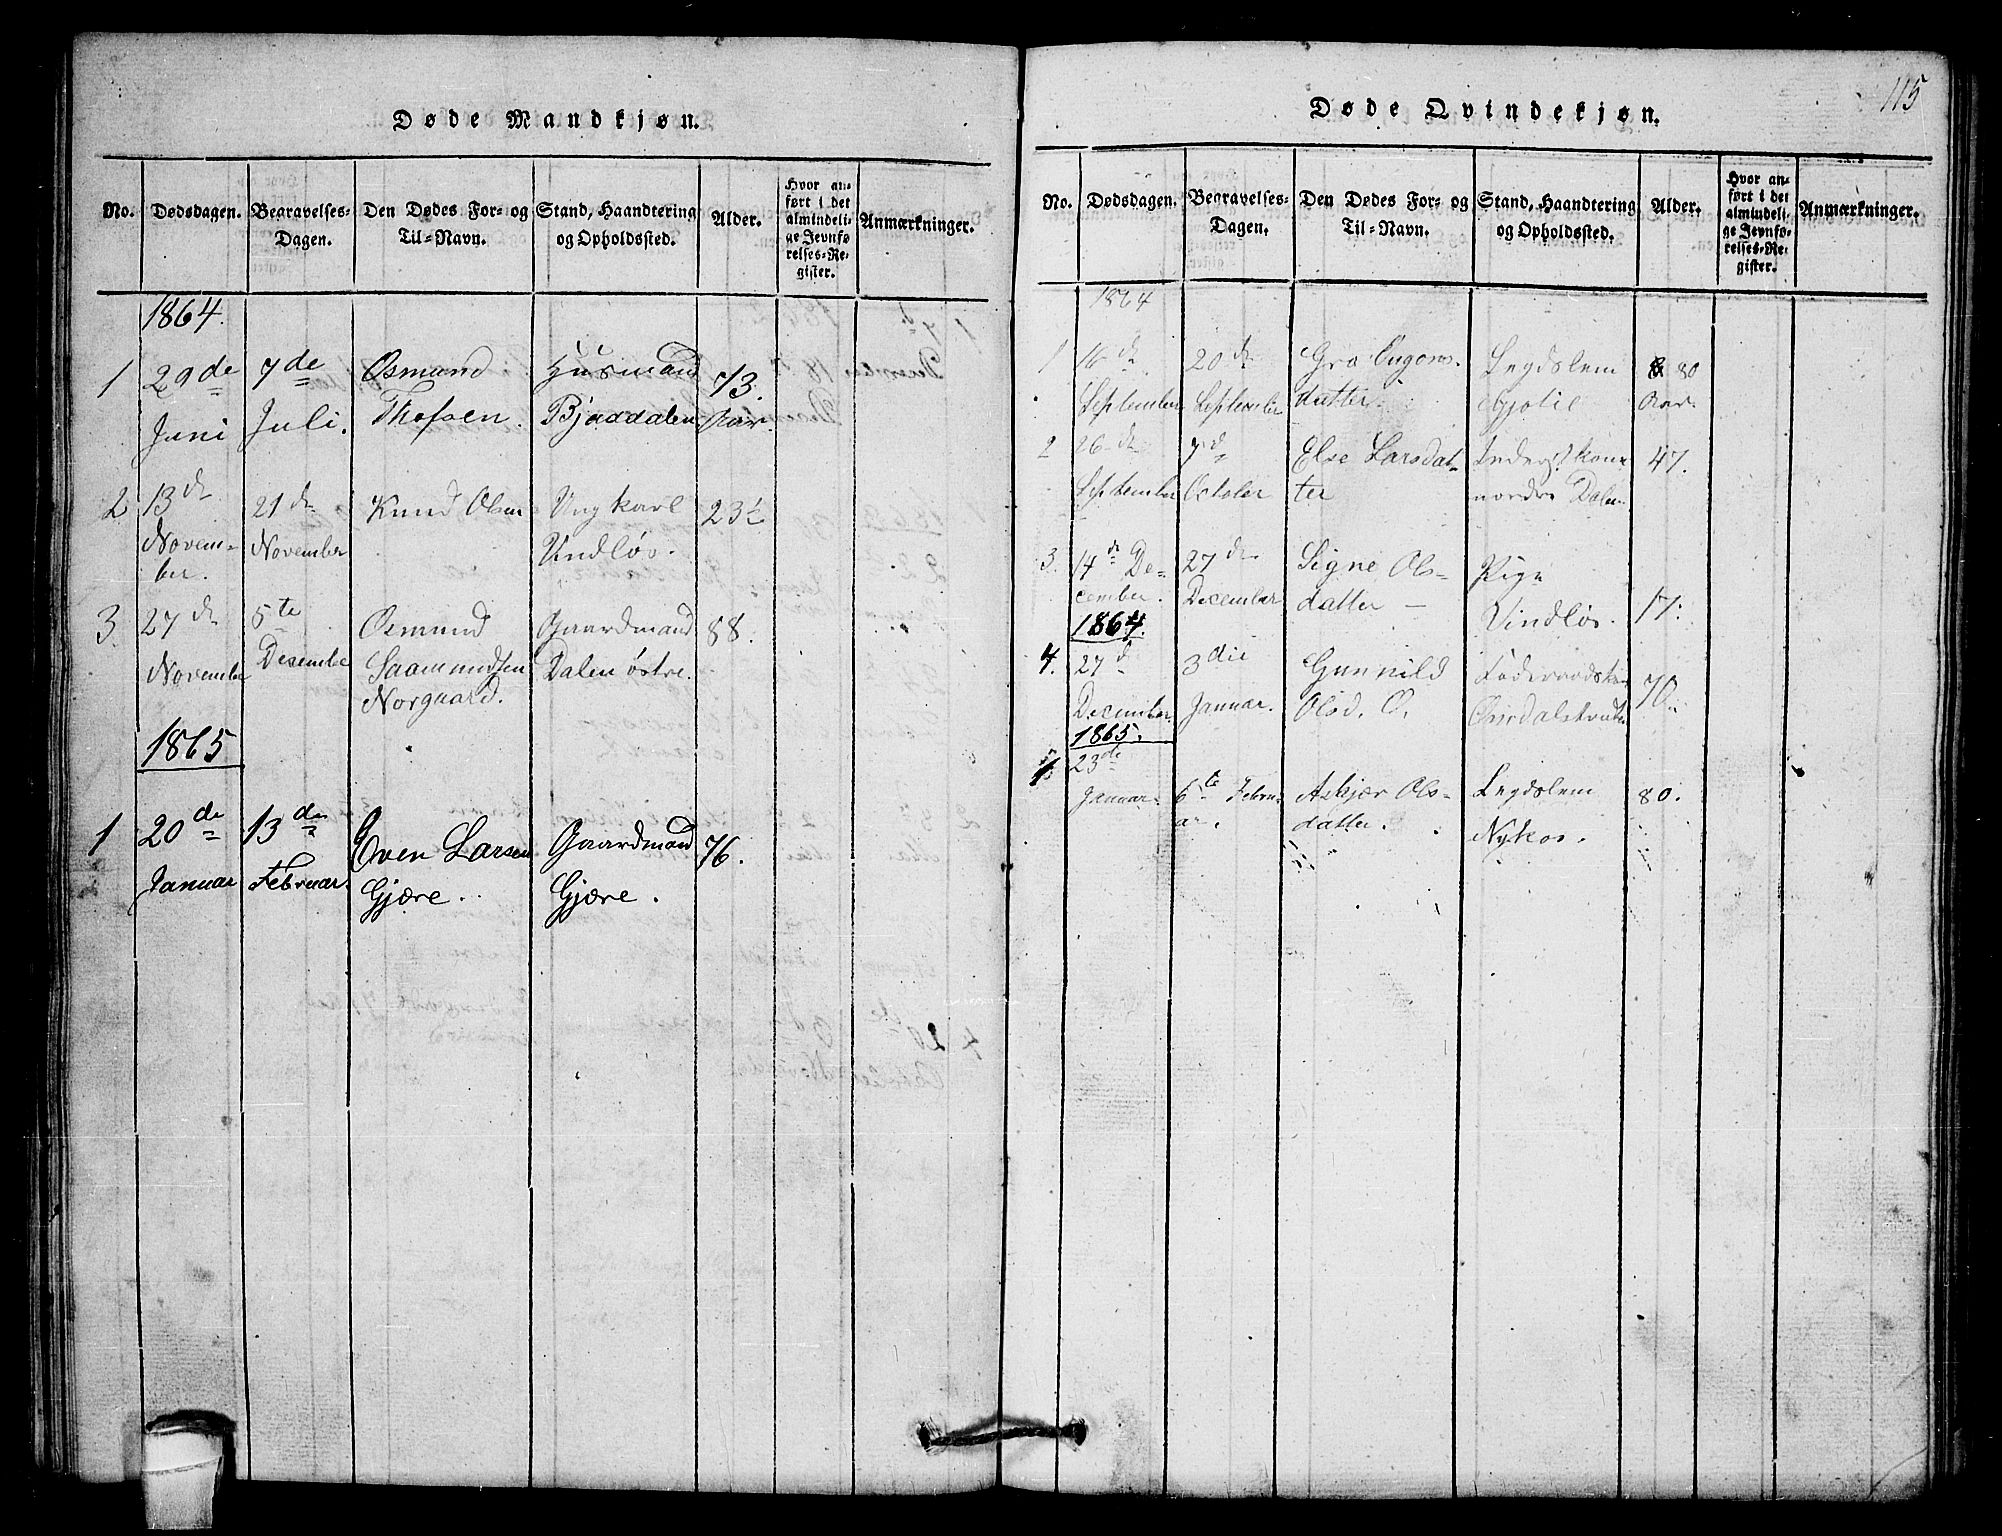 115
Døde Mandkjøn.
No. Dødsdagen. Begravelses-Dagen. Den Dødes For- og Til-Navn. Stand, Haandtering og Opholdssted. Alder. Hvor anført i det almindelige Jevnførelses-Register. Anmærkninger.
1864.
1 29de 7de Osmund Huusmand 73.
Juni Juli. Thofsen. Bjaadalen Aar.
2 13de 21de Knud Olsen Ungkarl 23½
Novem- November Vindløs.
ber.
3. 27de 5te Osmund Gaardmand 88.
November Desember Saamundsen Dalen østre.
Norgaard.
1865
1 20de 13de Even Larsen Gaardmand 76.
Januar Februar. Gjære. Gjære.
Døde Qvindekjøn.
No. Dødsdagen. Begravelses-Dagen. Den Dødes For- og Til-Navn. Stand, Haandtering og Opholdssted. Alder. Hvor anført i det almindelige Jevnførelses-Register. Anmærkninger.
1864
1 16de 20de Gro Legdslem 80
September September datter. Aar.
2 26de 7de Else Larsdat- Inderstkone 47.
September October ter nordre Dalen
3. 14de De- 27de Signe Ols- Pige
cember. December datter Vindløs. 17.
1864.
4. 27de 3die Gunnild 70.
December Januar. Olsd. Ø.
1865.
1 23de
Januar. 6te Febru- Asbjør Ols- Legdslem 80.
ar. datter. Nykos.